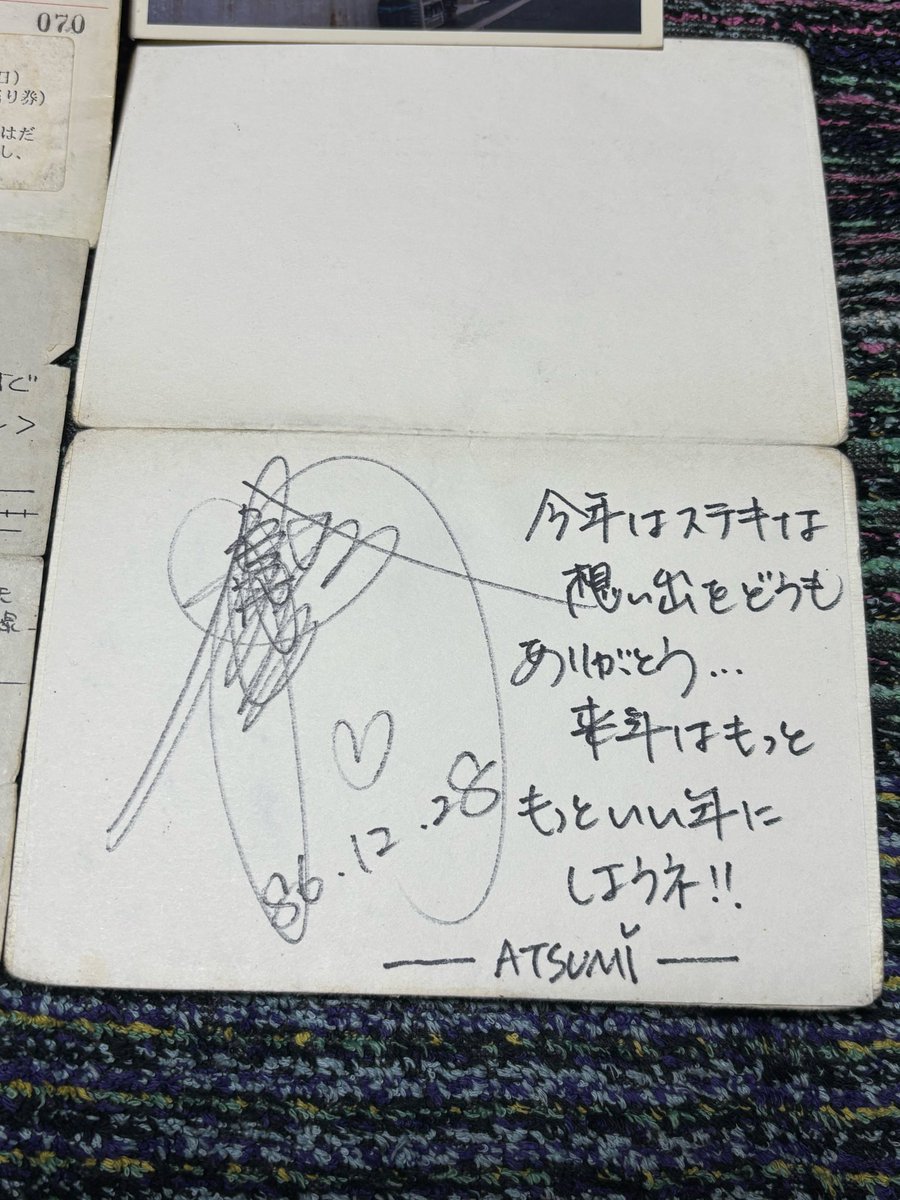 070
日)
り券)
はだ
し、
すぐ
今年はステキな
想い出をどうも
ありがとう...
来年はもっと
もっといい年に
しようネ!!
ATSUMI
86.12.28